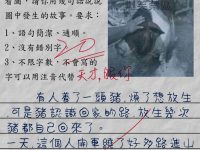 看圖,請你用幾句話說說
圖中發生的故事。要求:
1、語句簡潔、通順。
2、沒有錯別字
3、不限字數,不會寫的
字可以用注音代替
天才,
有人養了一頭豬,煩了想放生
可是豬認識回家的路,放生幾次
豬都自己回來了。
一天,這個人開車轉了好多路進山